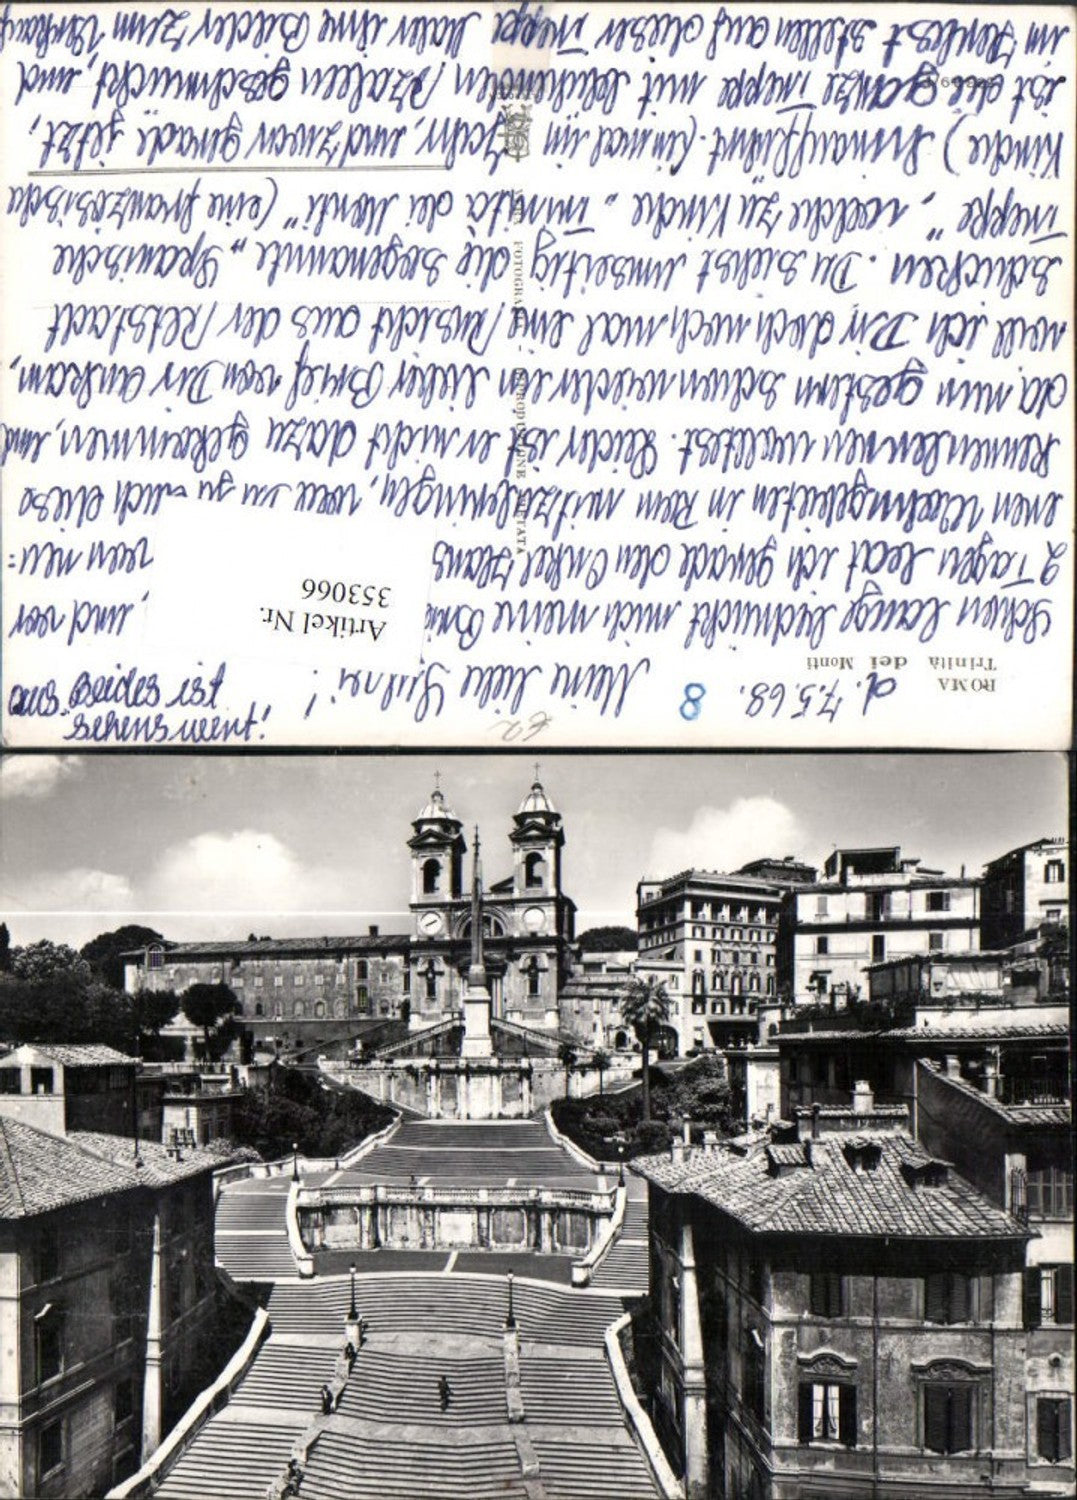 ROMA
Trinità dei Monti
d. 7.5.68. 8 Meine liebe !
€2
Schon lange bedrückt mich meine , und vor
2 Tagen bat ich gerade den Onkel Hans von mir:
einen in Rom mitzubringen, wo Du ja auch diese
kennenlernen wolltest. Leider ist er nicht dazu gekommen, und
da nun gestern schon wieder ein lieber Brief von Dir ankam,
will ich Dir doch noch mal eine Ansicht aus der Altstadt
schicken. Du siehst umseitig die sogenannte „Spanische
Treppe“, welche zu Kirche „Trinità dei Monti“ (eine französische
Kirche) hinaufführt. Einmal im Jahr, und zwar gerade jetzt,
ist die ganze Treppe mit blühenden Azaleen geschmückt, und
im Herbst stellen auf dieser Treppe Maler ihre Bilder zum Verkauf
sehenswert!
ist beides
Artikel Nr.
353066
VERA FOTOGRAFIA
RIPRODUZIONE VIETATA